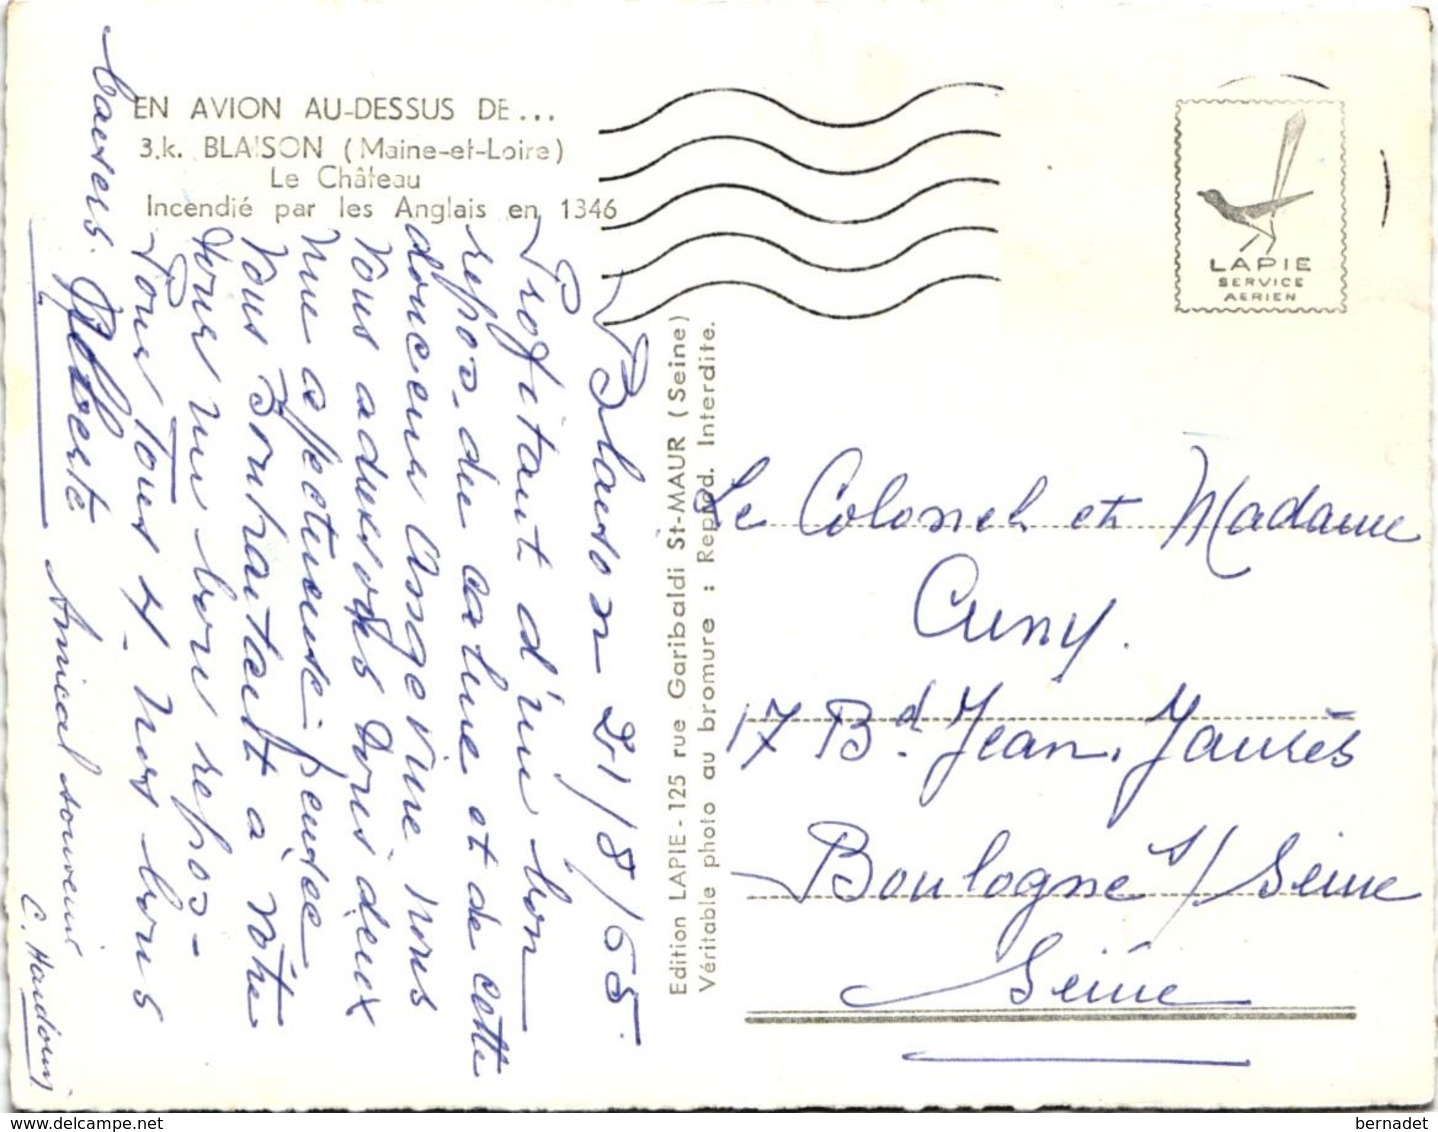 EN AVION AU-DESSUS DE...
3.k. BLAISON (Maine-et-Loire)
Le Château
Incendié par les Anglais en 1346
LAPIE
SERVICE
AERIEN
Edition LAPIE - 125 rue Garibaldi St-MAUR (Seine)
Véritable photo au bromure : Reprod. Interdite.
Blaison 21/8/65
Profitant d'un bon
repos, du calme et de cette
douceur Angevine nous
vous adressons tous deux
une affectueuse pensée
vous souhaitant à votre
tour un bon repos -
Pour tous 4, nos bons
baisers.
Amical souvenir
Le Colonel et Madame
Cuny.
17 Bd. Jean Jaurès
Boulogne s/ Seine
Seine
delcampe.net
bernadet